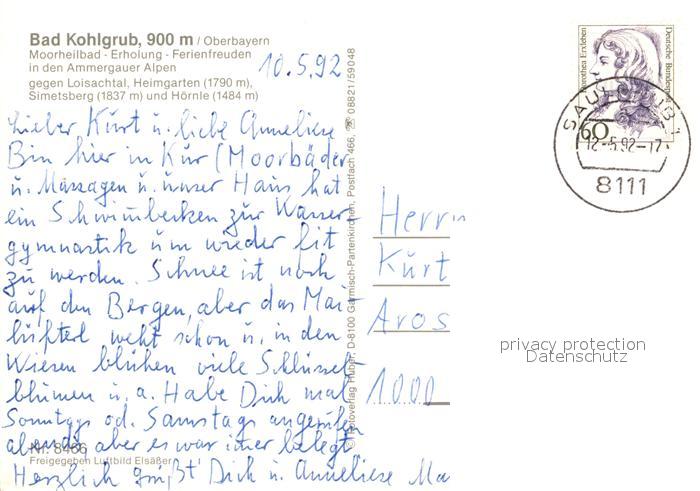 Bad Kohlgrub, 900 m / Oberbayern
Moorheilbad - Erholung - Ferienfreuden
in den Ammergauer Alpen
gegen Loisachtal, Heimgarten (1790 m),
Simetsberg (1837 m) und Hörnle (1484 m)
10.5.92
Lieber Kurt u. liebe Anneliese
Bin hier in Kur (Moorbäder
u. Massagen u. unser Haus hat
ein Schwimbecken zur Wasser
gymnastik um wieder fit
zu werden. Schnee ist noch
auf den Bergen, aber das Mai-
lüfterl weht schon u. in den
Wiesen blühen viele Schlüssel-
blumen u. a. Habe Dich mal
Sonntags od. Samstags angerufen
abends aber es war imer belegt
Herzlich grüßt Dich u. Anneliese Ma
Nr. 8466
Freigegeben Luftbild Elsäßer
Fotoverlag Huber, D-8100 Garmisch-Partenkirchen, Postfach 466, ☏ 08821/59048
Dorothea Erxleben
Deutsche Bundespost
60
12.-5.92-17
8111
Herrn
Kurt
Aros
1000
privacy protection
Datenschutz